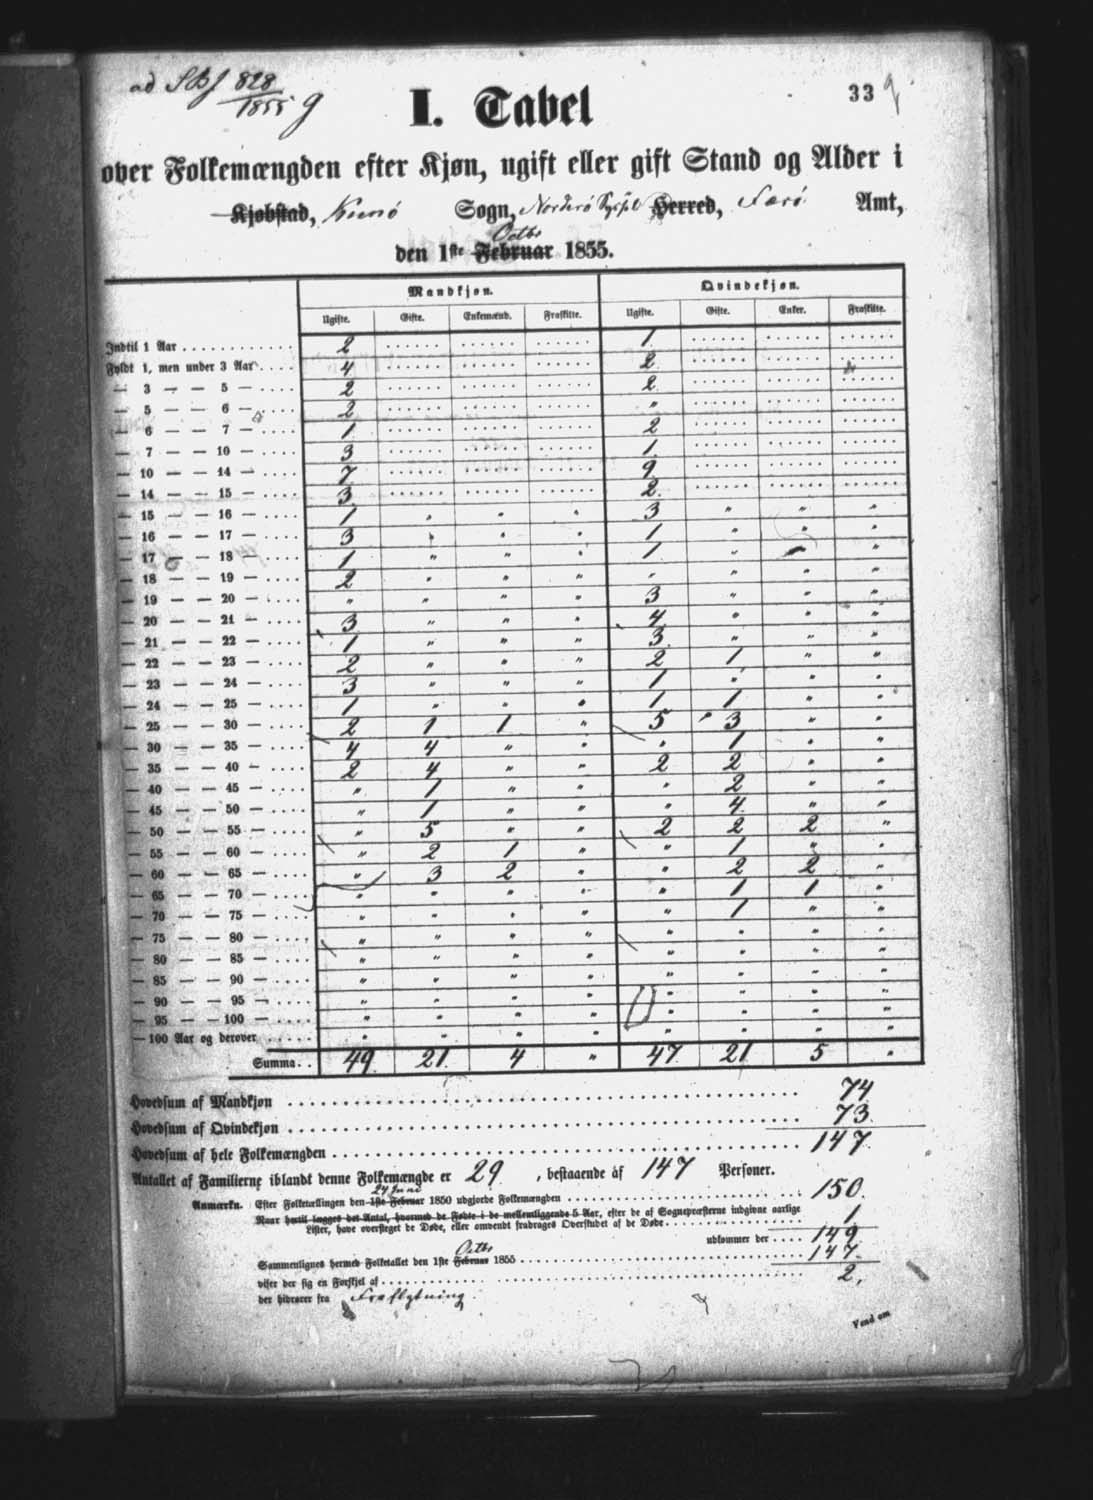 ad SBf 828/1855 g
33
I. Tabel
over Folkemængden efter Kjøn, ugift eller gift Stand og Alder i
Kjøbstad, Kunø Sogn, Norderø Syssel Herred, Færø Amt,
Octbr
den 1ste Februar 1855.
Mandkjøn. Qvindekjøn.
Ugifte. Gifte. Enkemænd. Fraskilte. Ugifte. Gifte. Enker. Fraskilte.
Indtil 1 Aar 2 1
Fyldt 1, men under 3 Aar 4 2
— 3 — — 5 — 2 2
— 5 — — 6 — 2 "
— 6 — — 7 — 1 2
— 7 — — 10 — 3 1
— 10 — — 14 — 7 9
— 14 — — 15 — 3 2
— 15 — — 16 — 1 " " " 3 " " "
— 16 — — 17 — 3 " " " 1 " " "
— 17 — — 18 — 1 " " " 1 " " "
— 18 — — 19 — 2 " " " " " " "
— 19 — — 20 — " " " " 3 " " "
— 20 — — 21 — 3 " " " 4 " " "
— 21 — — 22 — 1 " " " 3 " " "
— 22 — — 23 — 2 " " " 2 1 " "
— 23 — — 24 — 3 " " " 1 " " "
— 24 — — 25 — 1 " " " 1 1 " "
— 25 — — 30 — 2 1 1 " 5 3 " "
— 30 — — 35 — 4 4 " " " 1 " "
— 35 — — 40 — 2 4 " " 2 2 " "
— 40 — — 45 — " 1 " " " 2 " "
— 45 — — 50 — " 1 " " " 4 " "
— 50 — — 55 — " 5 " " 2 2 2 "
— 55 — — 60 — " 2 1 " " 1 " "
— 60 — — 65 — " 3 2 " " 2 2 "
— 65 — — 70 — " " " " " 1 1 "
— 70 — — 75 — " " " " " 1 " "
— 75 — — 80 — " " " " " " " "
— 80 — — 85 — " " " " " " " "
— 85 — — 90 — " " " " " " " "
— 90 — — 95 — " " " " " " " "
— 95 — — 100 — " " " " " " " "
— 100 Aar og derover " " " " " " " "
Summa. . 49 21 4 " 47 21 5 "
Hovedsum af Mandkjøn 74
Hovedsum af Qvindekjøn 73
Hovedsum af hele Folkemængden 147
Antallet af Familierne iblandt denne Folkemængde er 29, bestaaende af 147 Personer.
24 Juni
Anmærkn. Efter Folketællingen den 1ste Februar 1850 udgjorde Folkemængden 150.
Naar hertil lægges det Antal, hvormed de Fødte i de mellemliggende 5 Aar, efter de af Sognepræsterne indgivne aarlige
Lister, have oversteget de Døde, eller omvendt fradrages Overskudet af de Døde 1
udkommer der 149
Octbr
Sammenlignes hermed Folketallet den 1ste Februar 1855 147
viser der sig en Forskjel af 2,
der hidrører fra Fraflytning.
Vend om